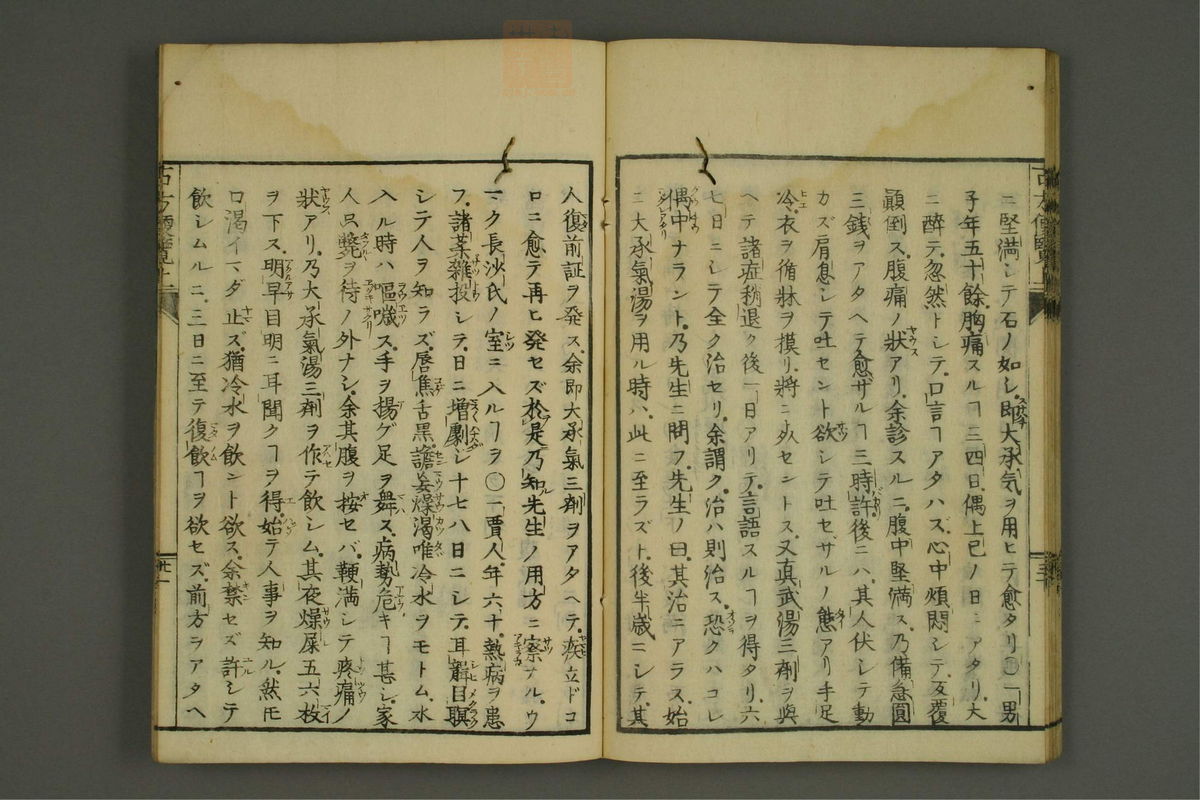 古方便覧上
ニ堅満シテ石ノ如シ、即大承気ヲ用ヒテ愈タリ〇一男
子年五十餘、胸痛スルヿ三四日、偶上巳ノ日ニアタリ、大
ニ醉テ、忽然トシテ、口言ヿアタハズ、心中煩悶シテ、反覆
顛倒ス、腹痛ノ状アリ、余診スルニ、腹中堅満ス、乃備急圓
三錢ヲアタヘテ愈ザルヿ三時許、後ニハ、其人伏シテ動
カズ肩息シテ吐セント欲シテ吐セザルノ態アリ手足
冷、衣ヲ循牀ヲ摸リ、将ニ死セントス、又真武湯三剤ヲ與
ヘテ諸症稍退ク後一日アリテ、言語スルヿヲ得タリ、六
七日ニシテ全ク治セリ、余謂ク、治ハ則治ス、恐クハコレ
偶中ナラント、乃先生ニ問フ、先生ノ曰、其治ニアラス、始
ニ大承氣湯ヲ用ル時ハ、此ニ至ラズト、後半歳ニシテ、其
人復前証ヲ発ス、余即大承氣三剤ヲアタヘテ、疾立ドコ
ロニ愈テ再ヒ発セズ、於是乃知先生ノ用方ニ審ナル、ウ
マク長沙氏ノ室ニ入ルヿヲ〇一賈人、年六十、熱病ヲ患
フ、諸薬雑投シテ、日ニ増劇シ十七八日ニシテ、耳聾目瞑
シテ人ヲ知ラズ、唇焦舌黒、譫妄燥渇唯冷水ヲモトム、水
入ル時ハ嘔噦ス、手ヲ揚グ足ヲ舞ス、病勢危キヿ甚シ、家
人只斃ヲ待ノ外ナシ、余其腹ヲ按セバ、鞕満シテ疼痛ノ
状アリ、乃大承氣湯三剤ヲ作テ飲シム、其夜燥屎五六枚
ヲ下ス、明早目明ニ耳聞クヿヲ得、始テ人事ヲ知ル、然モ
口渇イマダ止ズ、猶冷水ヲ飲ント欲ス、余禁セズ許シテ
飲シムルニ、三日ニ至テ復飲ヿヲ欲セズ、前方ヲアタヘ
古方便覧上
廿一